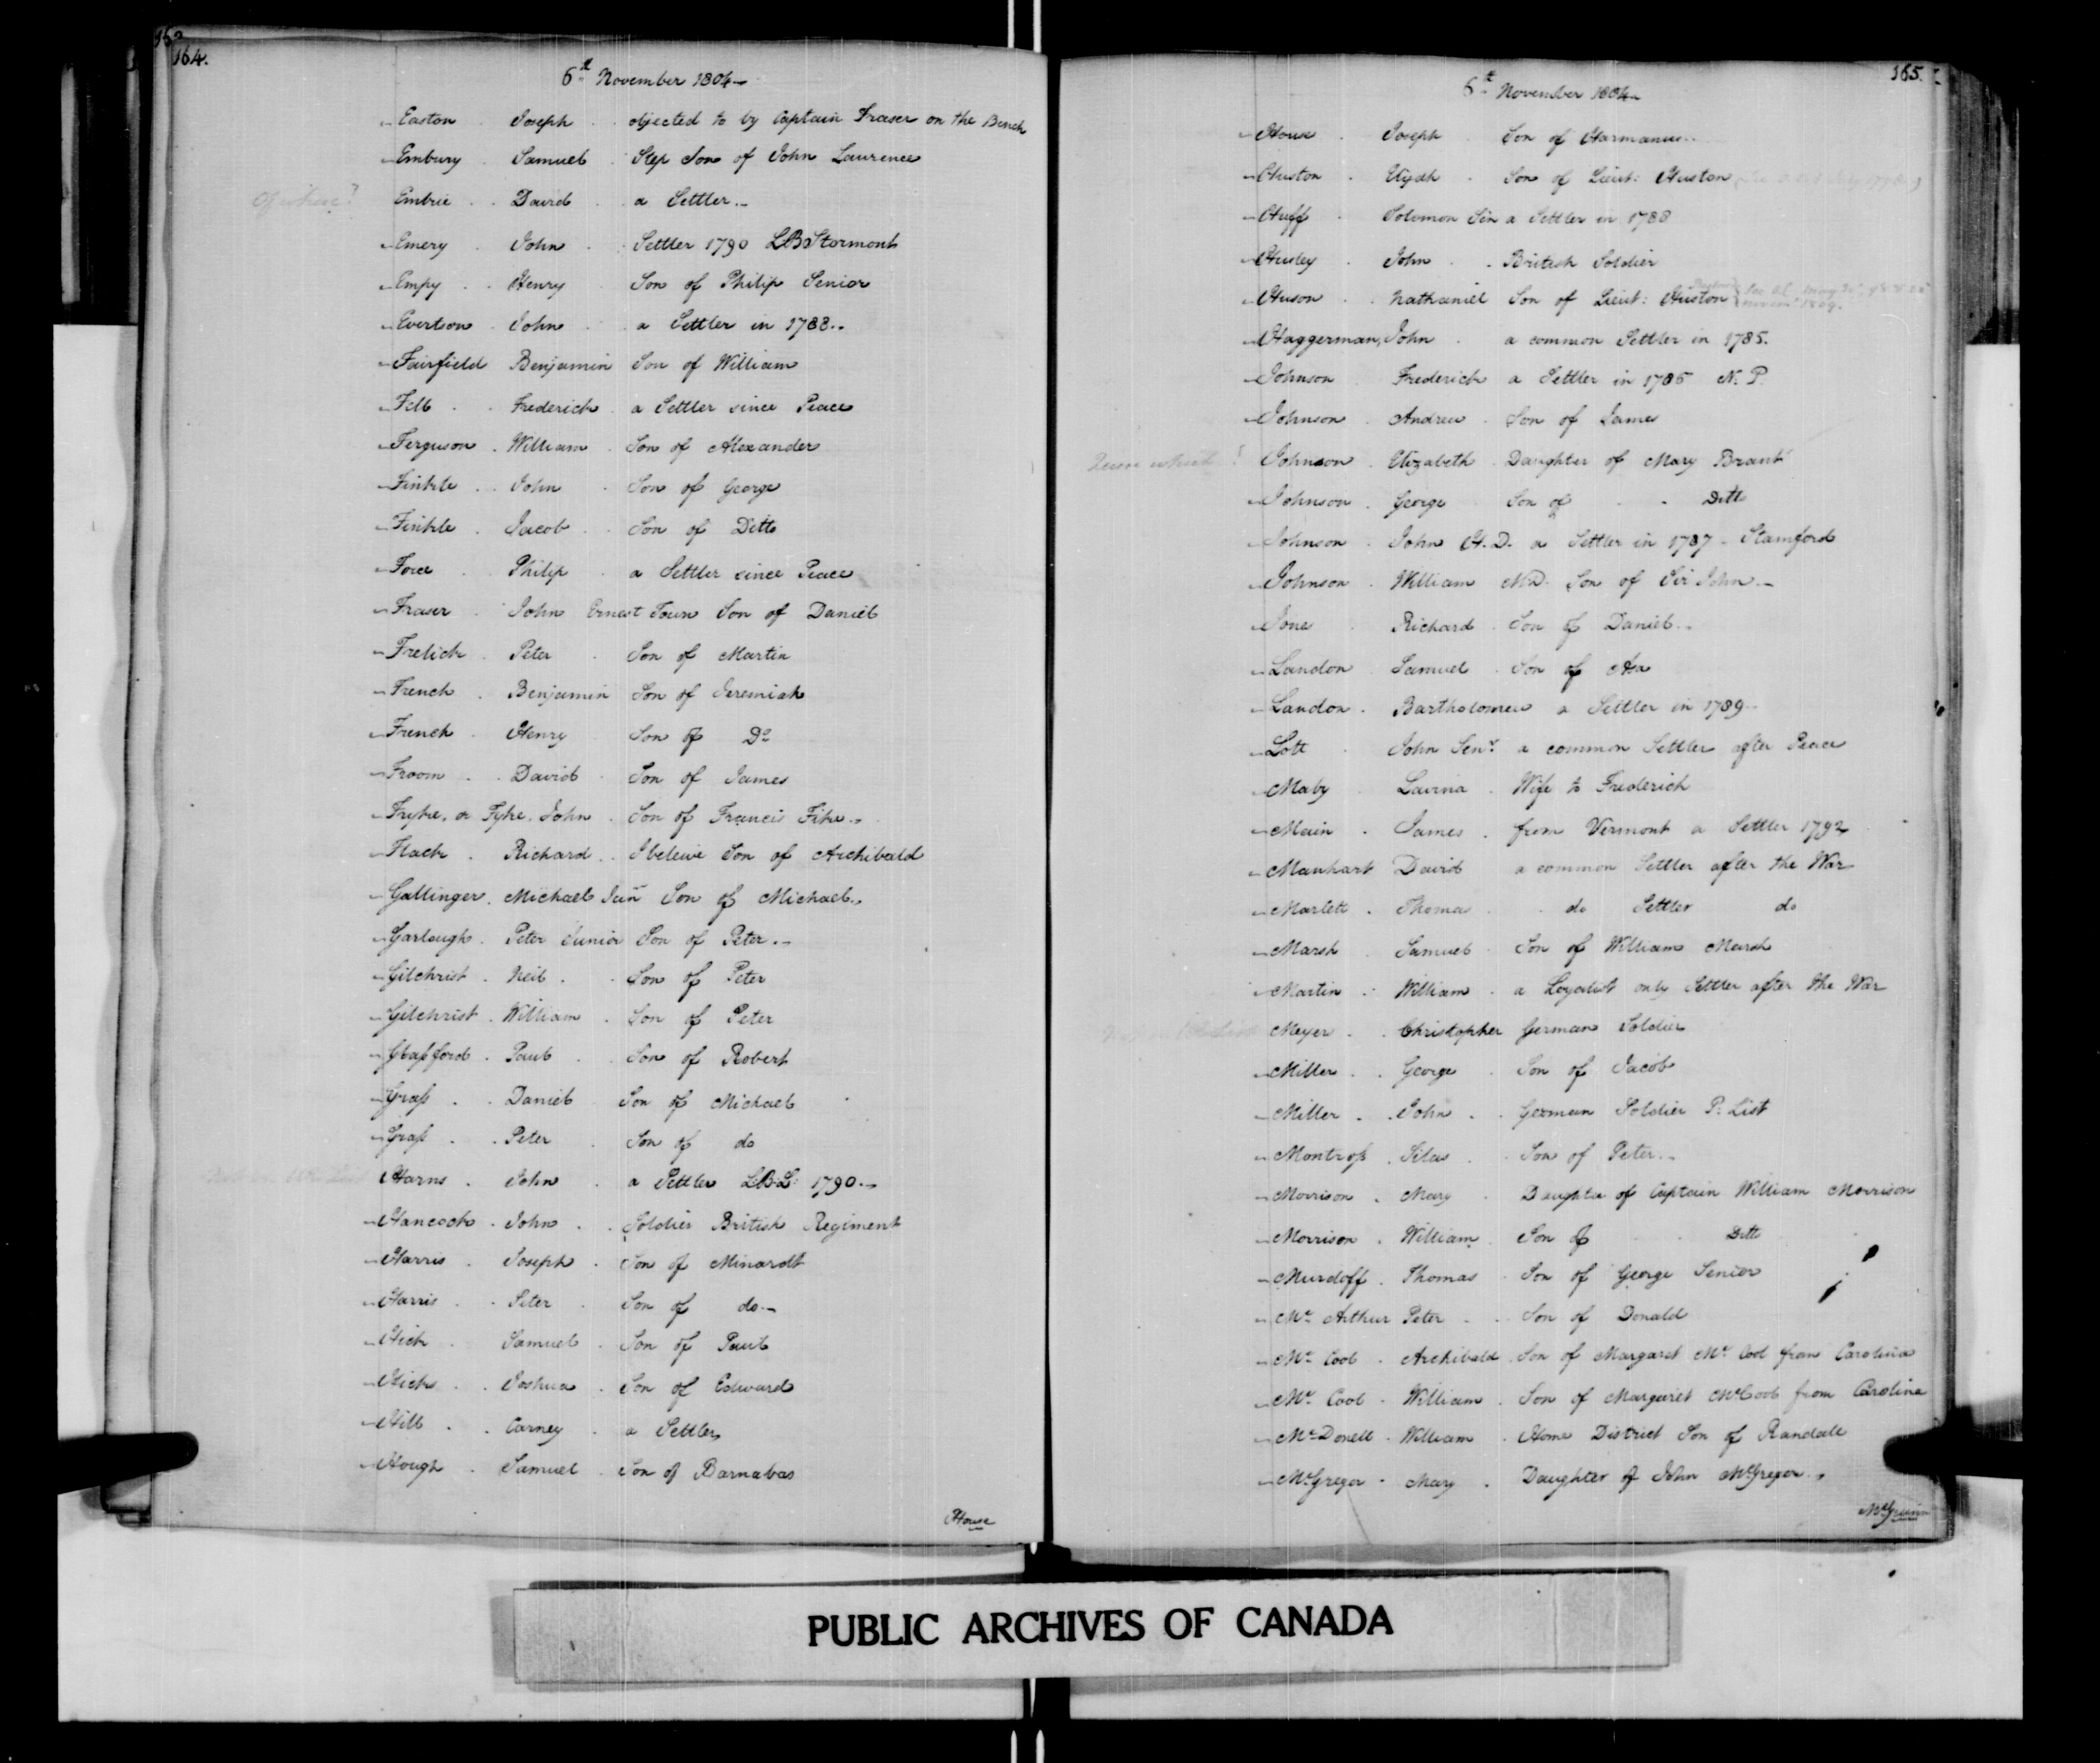 164.
6th November 1804 -
Easton Joseph objected to by Captain Fraser on the Bench
Embury Samuel Step Son of John Laurence
of whose? Embrie David a Settler
Emery John Settler 1790 LB Stormont
Empy Henry Son of Philip Senior
Evertson John a Settler in 1788
Fairfield Benjamin Son of William
Fell Frederick a Settler since Peace
Ferguson William Son of Alexander
Finkle John Son of George
Finkle Jacob Son of Ditto
Force Philip a Settler since Peace
Fraser John Ernest Town Son of Daniel
Frelich Peter Son of Martin
French Benjamin Son of Jeremiah
French Henry Son of Do
Froom David Son of James
Fryke, or Fyke, John Son of Francis Fike
Flack Richard I beleive Son of Archibald
Gallinger Michael Junr Son of Michael
Garlough Peter Junior Son of Peter
Gilchrist Neil Son of Peter
Gilchrist William Son of Peter
Glassford Paul Son of Robert
Grass Daniel Son of Michael
Grass Peter Son of do
Harns John a Settler LBL 1790
Hancock John Soldier British Regiment
Harris Joseph Son of Minardt
Harris Peter Son of do
Hick Samuel Son of Paul
Hicks Joshua Son of Edward
Hill Carney a Settler
Hough Samuel Son of Barnabas
House
165.
6th November 1804
House Joseph Son of Harmanus
Huston Elijah Son of Lieut: Huston
Huff Solomon Sen a Settler in 1788
Husley John British Soldier
Huson Nathaniel Son of Lieut: Huston
Haggerman, John a common Settler in 1785.
Johnson Frederick a Settler in 1785 N. P.
Johnson Andrew Son of James
Johnson Elizabeth Daughter of Mary Brant
Johnson George Son of Ditto
Johnson John H. D. a Settler in 1787 Stamford
Johnson William MD. Son of Sir John
Jone Richard Son of Daniel
Landon Samuel Son of Asa
Landon Bartholomew a Settler in 1789
Lott John Senr a common Settler after Peace
Maby Lavina Wife to Frederick
Main James from Vermont a Settler 1792
Manhart David a common Settler after the War
Marlett Thomas do Settler do
Marsh Samuel Son of William Marsh
Martin William a Loyalist only Settler after the War
Meyer Christopher German Soldier
Miller George Son of Jacob
Miller John German Soldier P. List
Montross Silas Son of Peter
Morrison Mary Daughter of Captain William Morrison
Morrison William Son of Ditto
Murdoff Thomas Son of George Senior
Mc Arthur Peter Son of Donald
Mc Cool Archibald Son of Margaret Mc Cool from Carolina
Mc Cool William Son of Margaret McCool from Carolina
McDonell William Home District Son of Randall
McGregor Mary Daughter of John McGregor
PUBLIC ARCHIVES OF CANADA